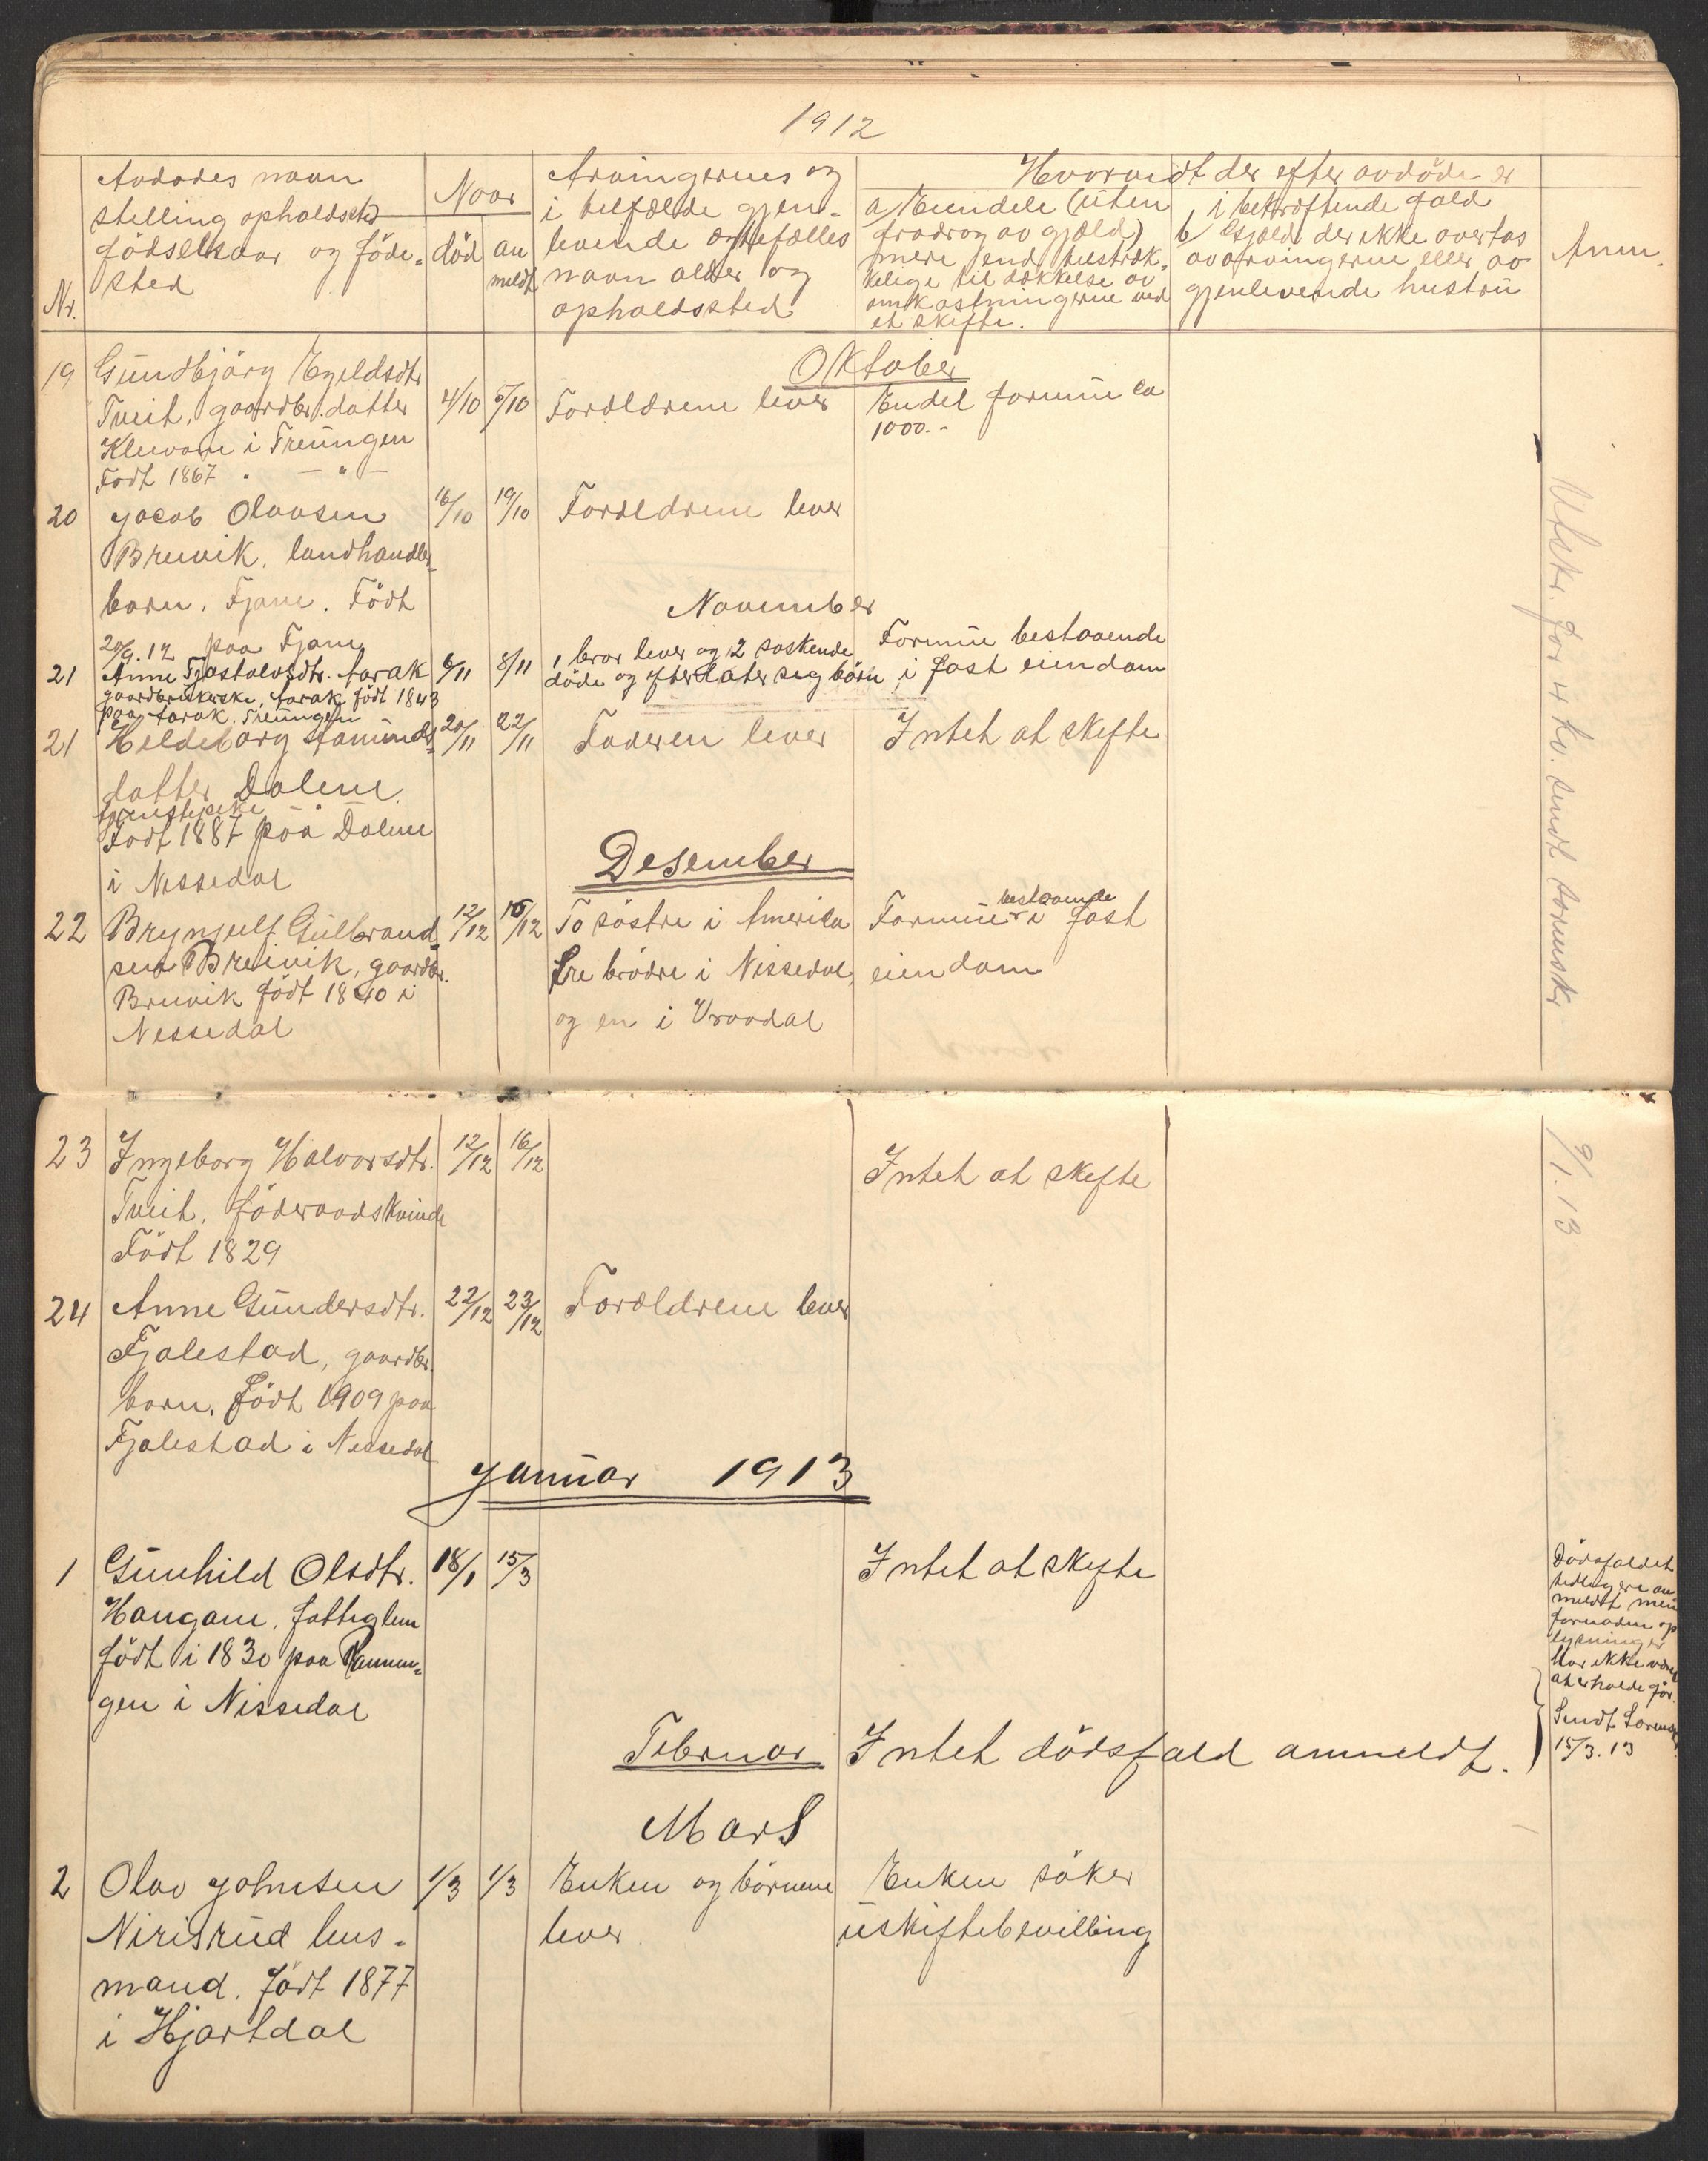 1912
Nr.
Avdødes navn
stilling opholdssted
fødselsaar og føde-
sted
Naar
død
an
meldt
Arvingernes og
i tilfælde gjen-
levende egtefælles
navn alder og
opholdssted
Hvorvidt der efter avdøde er
a) Eiendele (uten
fradrag av gjæld)
mere end tilstræk-
kelige til dækkelse av
omkostningerne ved
et skifte.
i bekræftende fald
b) Gjæld der ikke overtas
av arvingerne eller av
gjenlevende hustru
Anm.
Oktober
19 Gundbjörg Egeldsdtr 4/10 5/10 Forældrene lever Endel formue ca
Tveit, gaardbr.datter 1000.-
Klevane i Treungen
Født 1867 . — " —
20 Jacob Olavsen 16/10 19/10 Forældrene lever
Breivik, landhandler-
barn. Fjane. Født
20/9.12 paa Fjane
November
21 Anne Tjostolvsdtr. Aarak 6/11 8/11 1 bror lever og 2 søskende Formue bestaaende
gaardbrukerske, Aarak født 1843 døde og efterlater seg børn i fast eiendom
paa Aarak. Treungen
21 Hildeborg Aamunds- 20/11 22/11 Faderen lever Intet at skifte
datter Dalene.
tjenestepike
Født 1887 paa Dalene
i Nissedal
Desember
22 Brynjulf Gulbrand- 12/12 16/12 To søstre i Amerika Formue bestaaende i fast
sen Breivik, gaardbr. tre brødre i Nissedal, eiendom
Breivik født 1840 i og en i Vraadal
Nissedal
Utskr. for 4 kv. sendt sorenskr
9/1.13
23 Ingeborg Halvorsdtr. 12/12 16/12 Intet at skifte
Tveit, føderaadskvinde
Født 1829
24 Anne Gundersdtr. 22/12 23/12 Forældrene lever
Fjalestad, gaardbr.
barn. Født 1909 paa
Fjalestad i Nissedal
Januar 1913
1 Gunhild Olsdtr. 18/1 15/3 Intet at skifte
Haugane, fattiglem
født i 1830 paa
gen i Nissedal
Dødsfaldet
tidligere an
meldt men
fornødne op
lysninger
har ikke været
at erholde før.
Sendt Sorensk.
15/3.13
Februar Intet dødsfald anmeldt.
Mars
2 Olav Johnsen 1/3 1/3 Enken og børnene Enken søker
Nirisrud hus- lever uskiftebevilling
mand. Født 1877
i Hjartdal